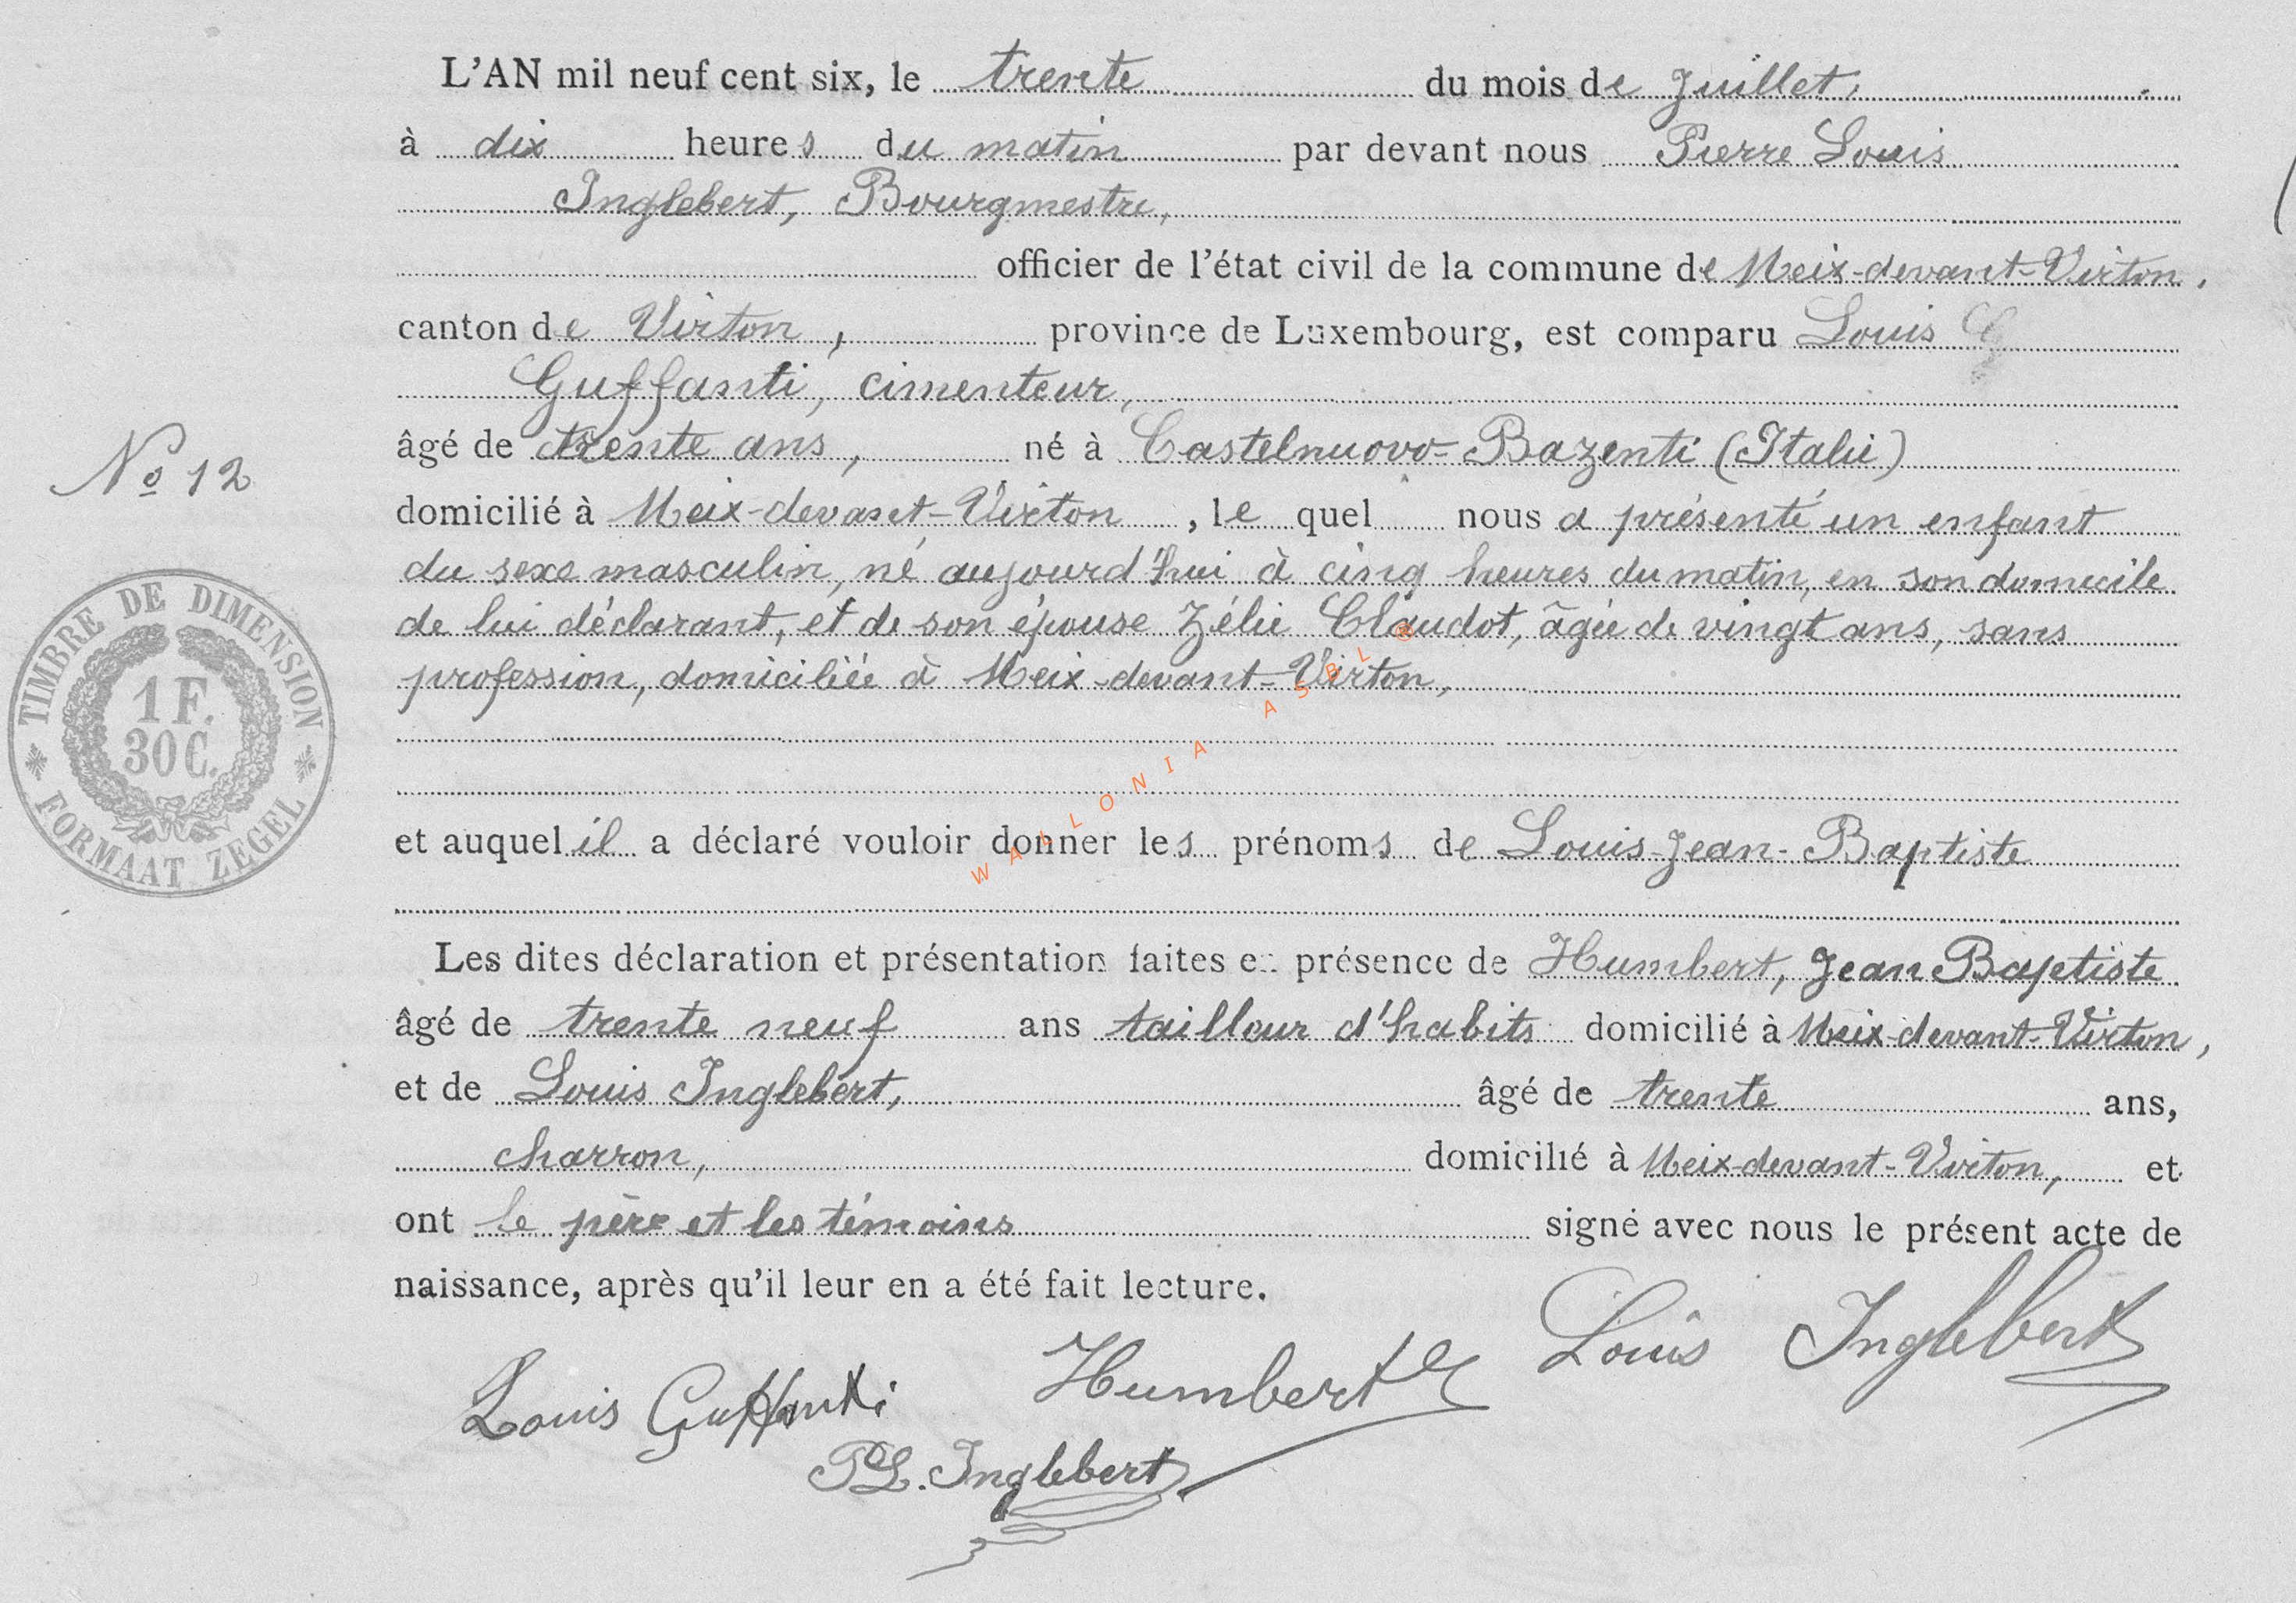 L'AN mil neuf cent six, le trente du mois de Juillet,
à dix heures du matin par devant nous Pierre Louis
Inglebert, Bourgmestre,
officier de l'état civil de la commune de Meix-devant-Virton,
canton de Virton, province de Luxembourg, est comparu Louis
Guffanti, cimenteur,
âgé de trente ans, né à Castelnuovo-Bazenti (Italie)
No 12
domicilié à Meix-devant-Virton, le quel nous a présenté un enfant
du sexe masculin, né aujourd'hui à cinq heures du matin, en son domicile
de lui déclarant, et de son épouse Zélie Claudot, âgée de vingt ans, sans
profession, domiciliée à Meix-devant-Virton,
TIMBRE DE DIMENSION
1 F.
30 C.
FORMAAT ZEGEL
WALLONIA ASBL ®
et auquel il a déclaré vouloir donner les prénoms de Louis-Jean-Baptiste
Les dites déclaration et présentation faites en présence de Humbert, Jean Baptiste
âgé de trente neuf ans tailleur d'habits domicilié à Meix-devant-Virton,
et de Louis Inglebert, âgé de trente ans,
charron, domicilié à Meix-devant-Virton, et
ont le père et les témoins signé avec nous le présent acte de
naissance, après qu'il leur en a été fait lecture.
Louis Guffanti Humbert Louis Inglebert
PL. Inglebert